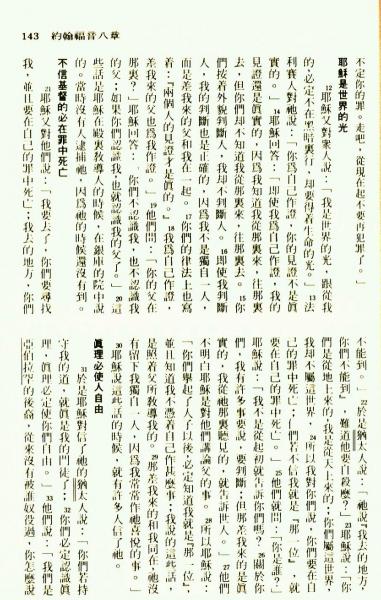 143 約翰福音八章
不定你的罪。走吧,從現在起不要再犯罪了。」
耶穌是世界的光
12耶穌又對衆人說:「我是世界的光,跟從我
的,必定不在黑暗裏行,却要得着生命的光。」13法
利賽人對祂說:「你爲自己作證,你的見證不是眞
實的。」14耶穌回答:「即使我爲自己作證,我的
見證還是眞實的,因爲我知道我從那裏來,往那裏
去,但你們却不知道我從那裏來,往那裏去。15你
們按着外貌判斷人,我却不判斷人。16即使我判斷
人,我的判斷也是正確的,因爲我不是獨自一人,
而是差我來的父和我在一起。17你們的律法上也寫
着:『兩個人的見證才是眞的。』18我爲自己作證,
差我來的父也爲我作證。」19他們問:「你的父在
那裏?」耶穌回答:「你們不認識我,也不認識我
的父;如果你們認識我,也就認識我的父了。」20這
些話是耶穌在殿裏教導人的時候,在銀庫的院中說
的。當時沒有人逮捕祂,因爲祂的時候還沒有到。
不信基督的必在罪中死亡
21耶穌又對他們說:「我要去了,你們要尋找
我,並且要在自己的罪中死亡;我去的地方,你們
不能到。」22於是猶太人說:「祂說『我去的地方,
你們不能到』,難道他要自殺麼?」23耶穌說:「你
們是從地上來的,我是從天上來的;你們屬這世界,
我却不屬這世界。24所以我對你們說,你們要在自
己的罪中死亡;你們若不信我就是『那一位』,就
要在自己的罪中死亡。」25他們就問:「你是誰?」
耶穌說:「我不是從起初就告訴你們嗎?26關於你
們,我有許多事要說,要判斷;但那差我來的是眞
實的,我從祂那裏聽見的,就告訴世人。」27他們
不明白耶穌是對他們講論父的事。28所以耶穌說:
「你們舉起了人子以後,必定知道我就是『那一位』,
並且知道我不憑着自己作甚麼事;我說的這些話,
是照着父所教導我的。29那差我來的和我同在;祂沒
有留下我獨自一人,因爲我常常作祂喜悅的事。」
30耶穌說這些話的時候,就有許多人信了祂。
眞理必使人自由
31於是耶穌對信了祂的猶太人說:「你們若持
守我的道,就眞是我的門徒了;32你們必定認識眞
理,眞理必定使你們自由。」33他們說:「我們是
亞伯拉罕的後裔,從來沒有被誰奴役過,你怎麼說